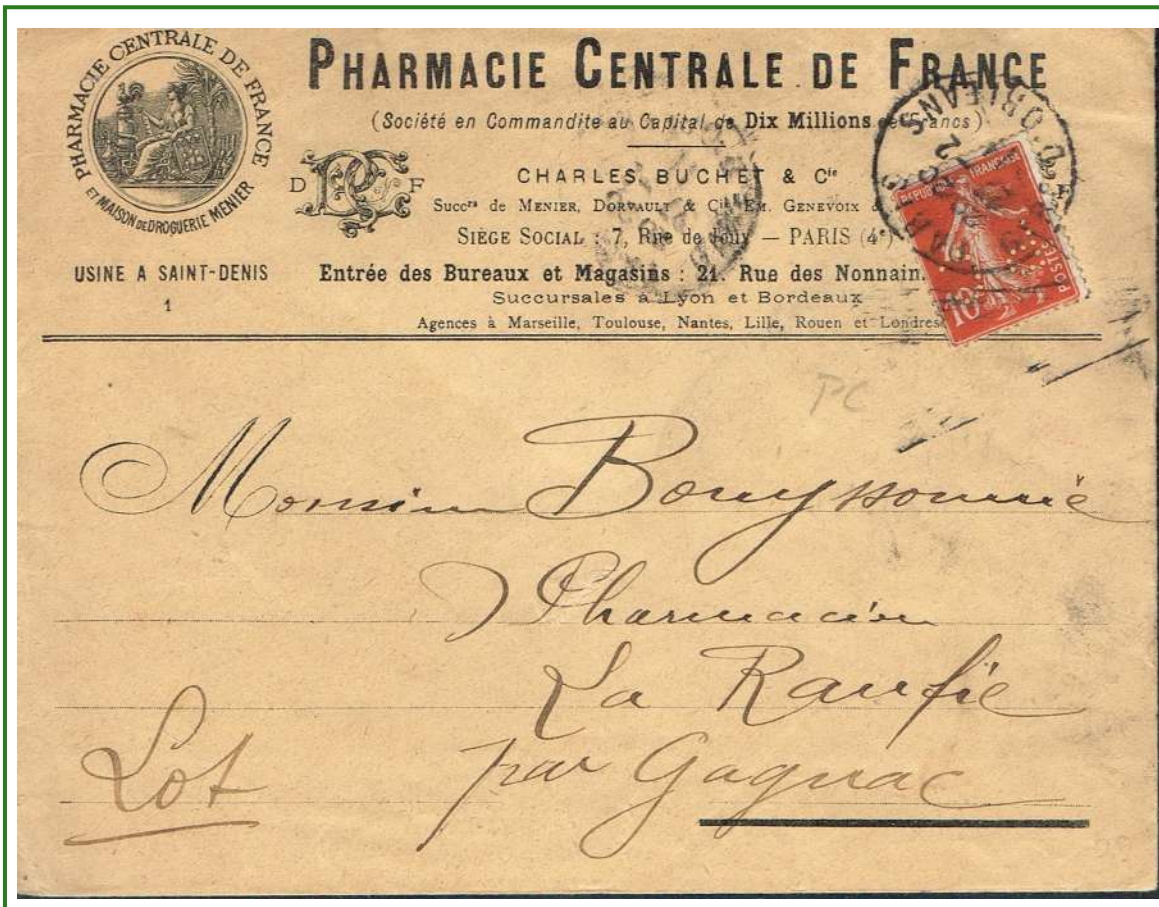 PHARMACIE CENTRALE DE FRANCE
ET MAISON DE DROGUERIE MENIER
USINE A SAINT-DENIS
1
PHARMACIE CENTRALE DE FRANCE
(Société en Commandite au Capital de Dix Millions de Francs)
D F
CHARLES BUCHET & Cie
Succrs de MENIER, DORVAULT & Cie, EM. GENEVOIX &
SIÈGE SOCIAL : 7, Rue de Jouy — PARIS (4e)
Entrée des Bureaux et Magasins : 21, Rue des Nonnain
Succursales à Lyon et Bordeaux
Agences à Marseille, Toulouse, Nantes, Lille, Rouen et Londres
REPUBLIQUE FRANÇAISE
POSTES
10
PC
Monsieur Bouyssonnie
Pharmacien
La Raufie
par Gagnac
Lot